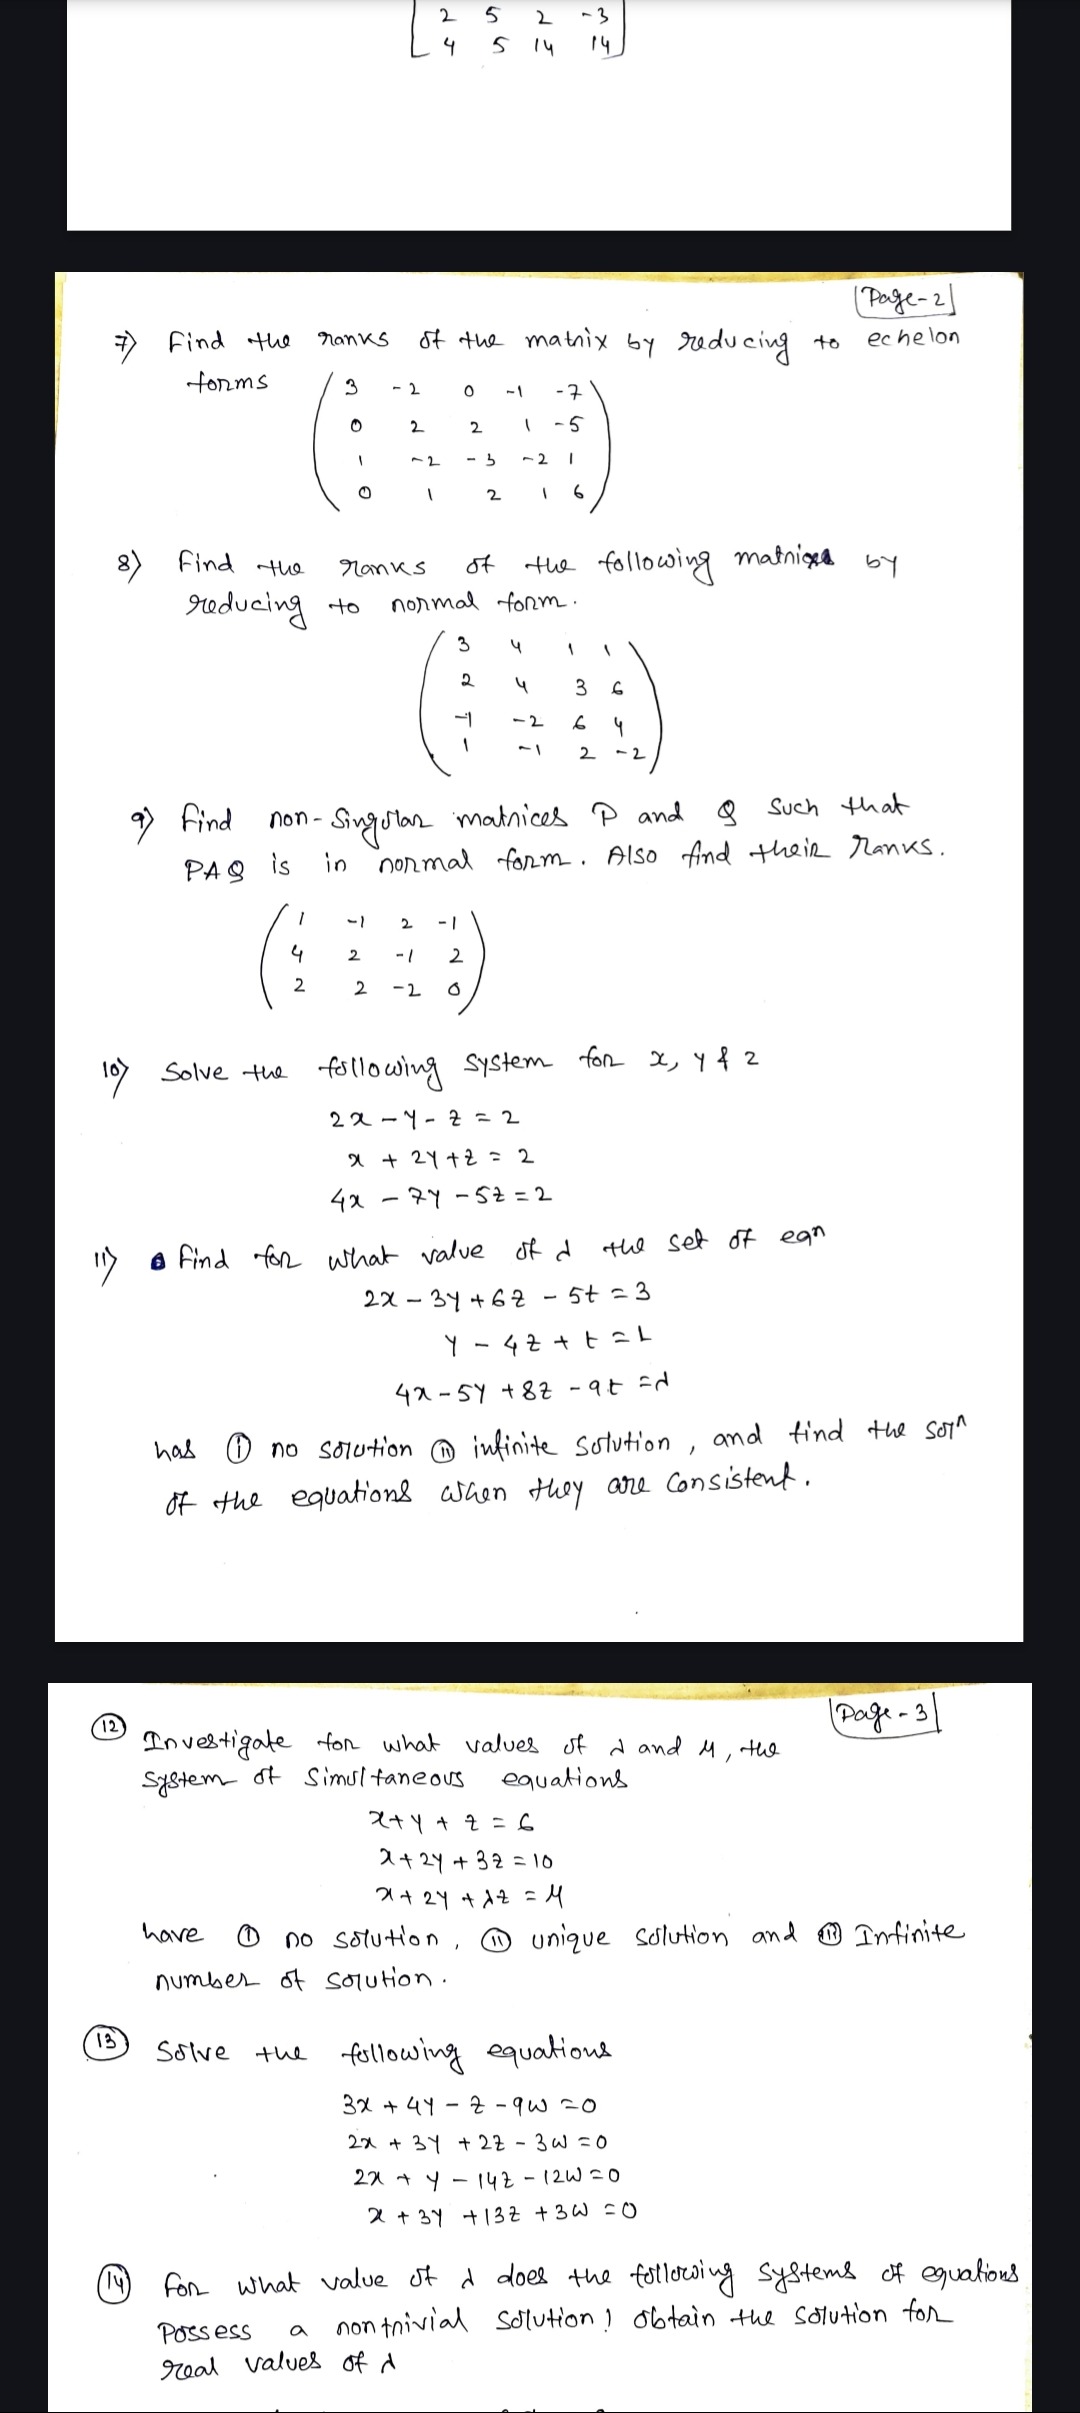 2 5 2 -3
4 5 14 14
Page-2
7) Find the ranks of the matrix by reducing to echelon
forms
3 -2 0 -1 -7
0 2 2 1 -5
1 -2 -3 -2 1
0 1 2 1 6
8) Find the ranks of the following matrices by
reducing to normal form.
3 4 1 1
2 4 3 6
-1 -2 6 4
1 -1 2 -2
9) Find non-singular matrices P and Q such that
PAQ is in normal form. Also find their ranks.
1 -1 2 -1
4 2 -1 2
2 2 -2 0
10) Solve the following system for x, y & z
2x - y - z = 2
x + 2y + z = 2
4x - 7y - 5z = 2
11) Find for what value of λ the set of eqn
2x - 3y + 6z - 5t = 3
y - 4z + t = 1
4x - 5y + 8z - 9t = λ
has (i) no solution (ii) infinite solution, and find the solⁿ
of the equations when they are consistent.
Page-3
(12) Investigate for what values of λ and μ, the
system of simultaneous equations
x + y + z = 6
x + 2y + 3z = 10
x + 2y + λz = μ
have (i) no solution, (ii) unique solution and (iii) Infinite
number of solution.
(13) Solve the following equations
3x + 4y - z - 9w = 0
2x + 3y + 2z - 3w = 0
2x + y - 14z - 12w = 0
x + 3y + 13z + 3w = 0
(14) For what value of λ does the following systems of equations
possess a nontrivial solution? obtain the solution for
real values of λ